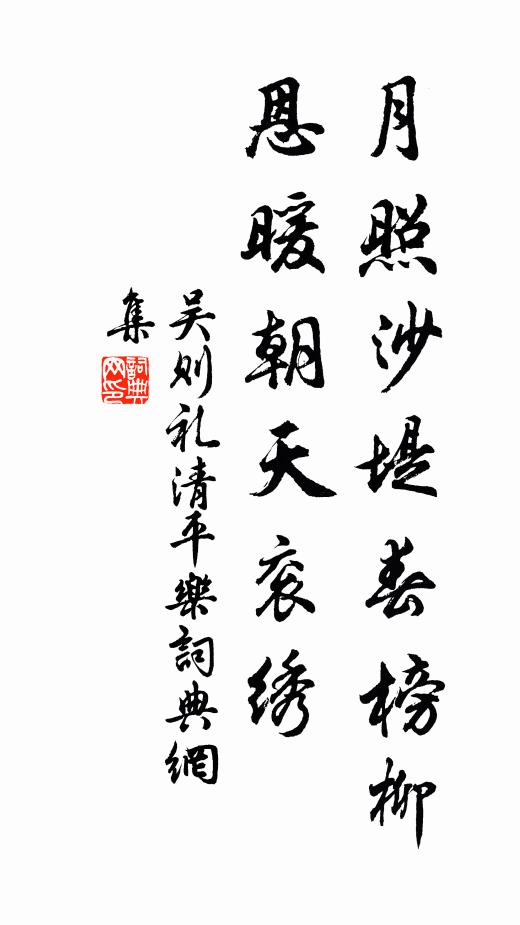 月照沙堤春榜柳
恩暖朝天衮绣
吴则礼清平樂詞典網
集
詞典
网印